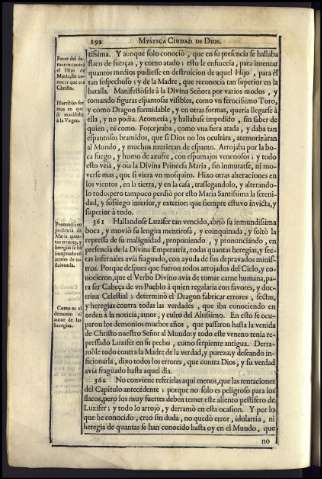 292 MYSTICA CIUDAD DE DIOS.
tissima. Y aunque solo conociò, que en su presencia se hallaba
flaco de fuerças, y como atado; esto le enfurecia, para intentar
quantos medios pudiesse en destruicion de aquel Hijo, para èl
tan sospechoso; y de la Madre, que reconocia tan superior en la
batalla. Manifestòsele à la Divina Señora por varios modos, y
tomando figuras espantosas visibles, como vn fierecissimo Toro,
y como Dragon formidable, y en otras formas, queria llegarse à
ella, y no podia. Acometia, y hallabase impedido, sin saber de
quien, ni como. Forcejaba, como vna fiera atada, y daba tan
espantosos bramidos, que si Dios no los oculta, atemorizàran
al Mundo, y muchos murieran de espanto. Arrojaba por la bo
ca fuego, y humo de azufre, con espumajos venenosos; y todo
esto veìa, y oìa la Divina Princesa Maria, sin inmutarse, ni mo-
verse mas, que si viera vn mosquito. Hizo otras alteraciones en
los vientos, en la tierra, y en la casa, trassegandolo, y alterando-
lo todo; pero tampoco perdiò por esto Maria Santissima la sereni-
dad, y sossiego interior, y exterior; que siempre estuvo invicta, y
superior à todo.
361 Hallandose Luzifer tan vencido, abriò su inmundissima
boca, y moviò su lengua mentirosa, y coinquinada, y soltò la
represa de su malignidad, proponiendo, y pronunciando, en
presencia de la Divina Emperatriz, todas quantas heregias, y sec-
tas infernales avia fraguado, con ayuda de sus depravados minis-
tros. Porque despues que fueron todos arrojados del Cielo, y co-
nocieron, que el Verbo Divino avia de tomar carne humana, pa-
ra ser Cabeça de vn Pueblo à quien regalaria con favores, y doc-
trina Celestial; determinò el Dragon fabricar errores, sectas,
y heregias contra todas las verdades, que iba conociendo en
orden à la noticia, amor, y culto del Altissimo. En esto se ocu-
paron los demonios muchos años, que passaron hasta la venida
de Christo nuestro Señor al Mundo; y todo este veneno tenia re-
pressado Luzifer en su pecho, como serpiente antigua. Derra-
mòle todo contra la Madre de la verdad, y pureza; y deseando in-
ficionarla, dixo todos los errores, que contra Dios, y su verdad
avia fraguado hasta aquel dia.
362 No conviene referirlas aqui menos, que las tentaciones
del Capitulo antecedente; porque no solo es peligroso para los
flacos, pero los muy fuertes deben temer este aliento pestifero de
Luzifer; y todo lo arrojò, y derramò en esta ocasion. Y por lo
que he conocido, creo sin duda, no quedò error, idolatria, ni
heregia de quantas se han conocido hasta oy en el Mundo, que
no